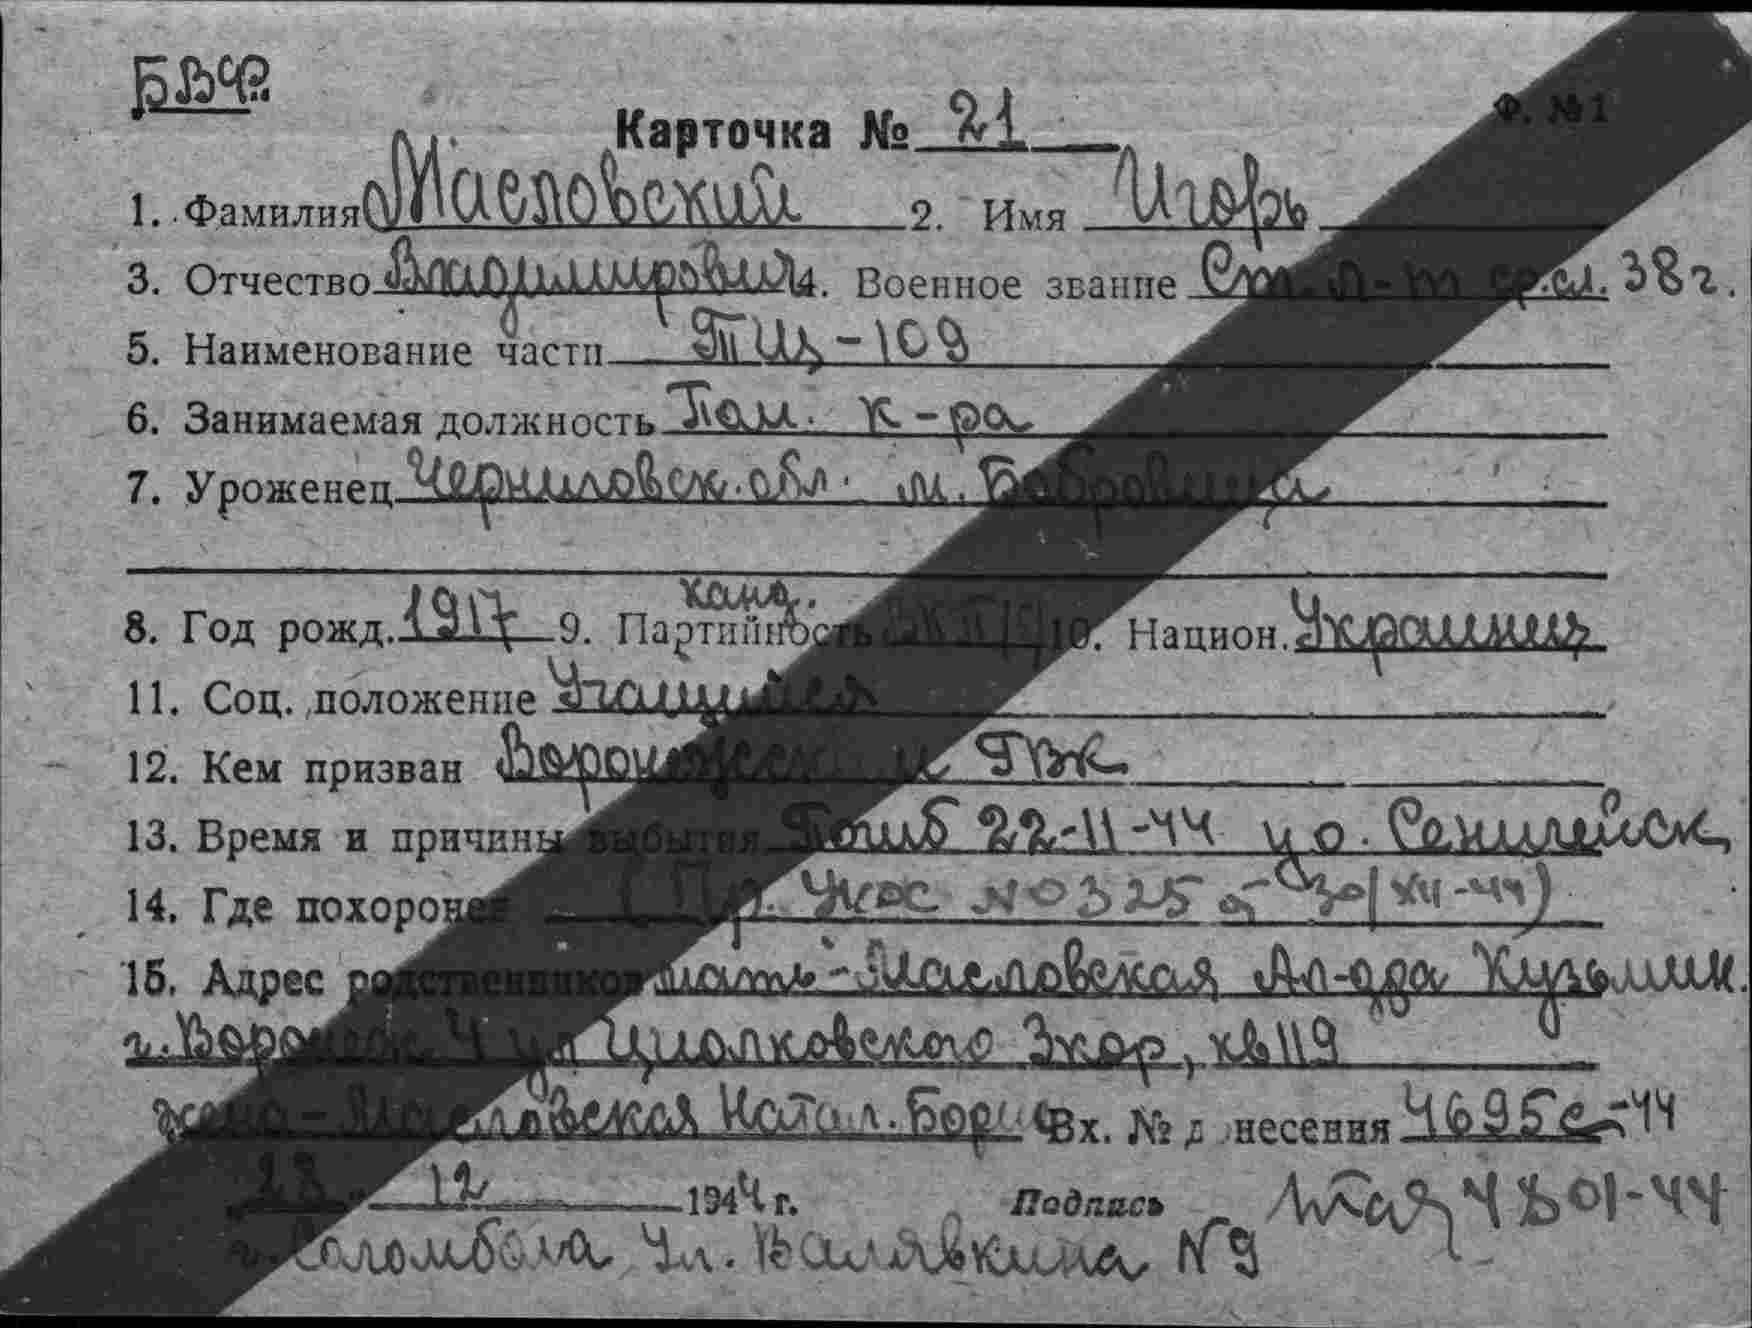 БВФ.
Ф. №1
Карточка № 21
1. Фамилия Масловский 2. Имя Игорь
3. Отчество Владимирович 4. Военное звание Ст. л-т ср.сл. 38 г.
5. Наименование части ТЩ-109
6. Занимаемая должность Пом. к-ра
7. Уроженец Черниговск. обл. м. Бобровица
канд.
8. Год рожд. 1917 9. Партийность ВКП(б) 10. Национ. Украинец
11. Соц. положение Учащийся
12. Кем призван Воронежским ГВК
13. Время и причины выбытия Погиб 22-11-44 у о. Сенгилейск
14. Где похоронен (Пр. №0325 от 30/XII-44)
15. Адрес родственников мать - Масловская Ал-дра Кузьмин.
г. Воронеж 4 ул Циолковского 3 кор, кв 119
жена - Масловская Натал. Борис Вх. № донесения 4695с-44
23 12 1944 г. Подпись 4801-44
г. Соломбала Ул. Валявкина №9